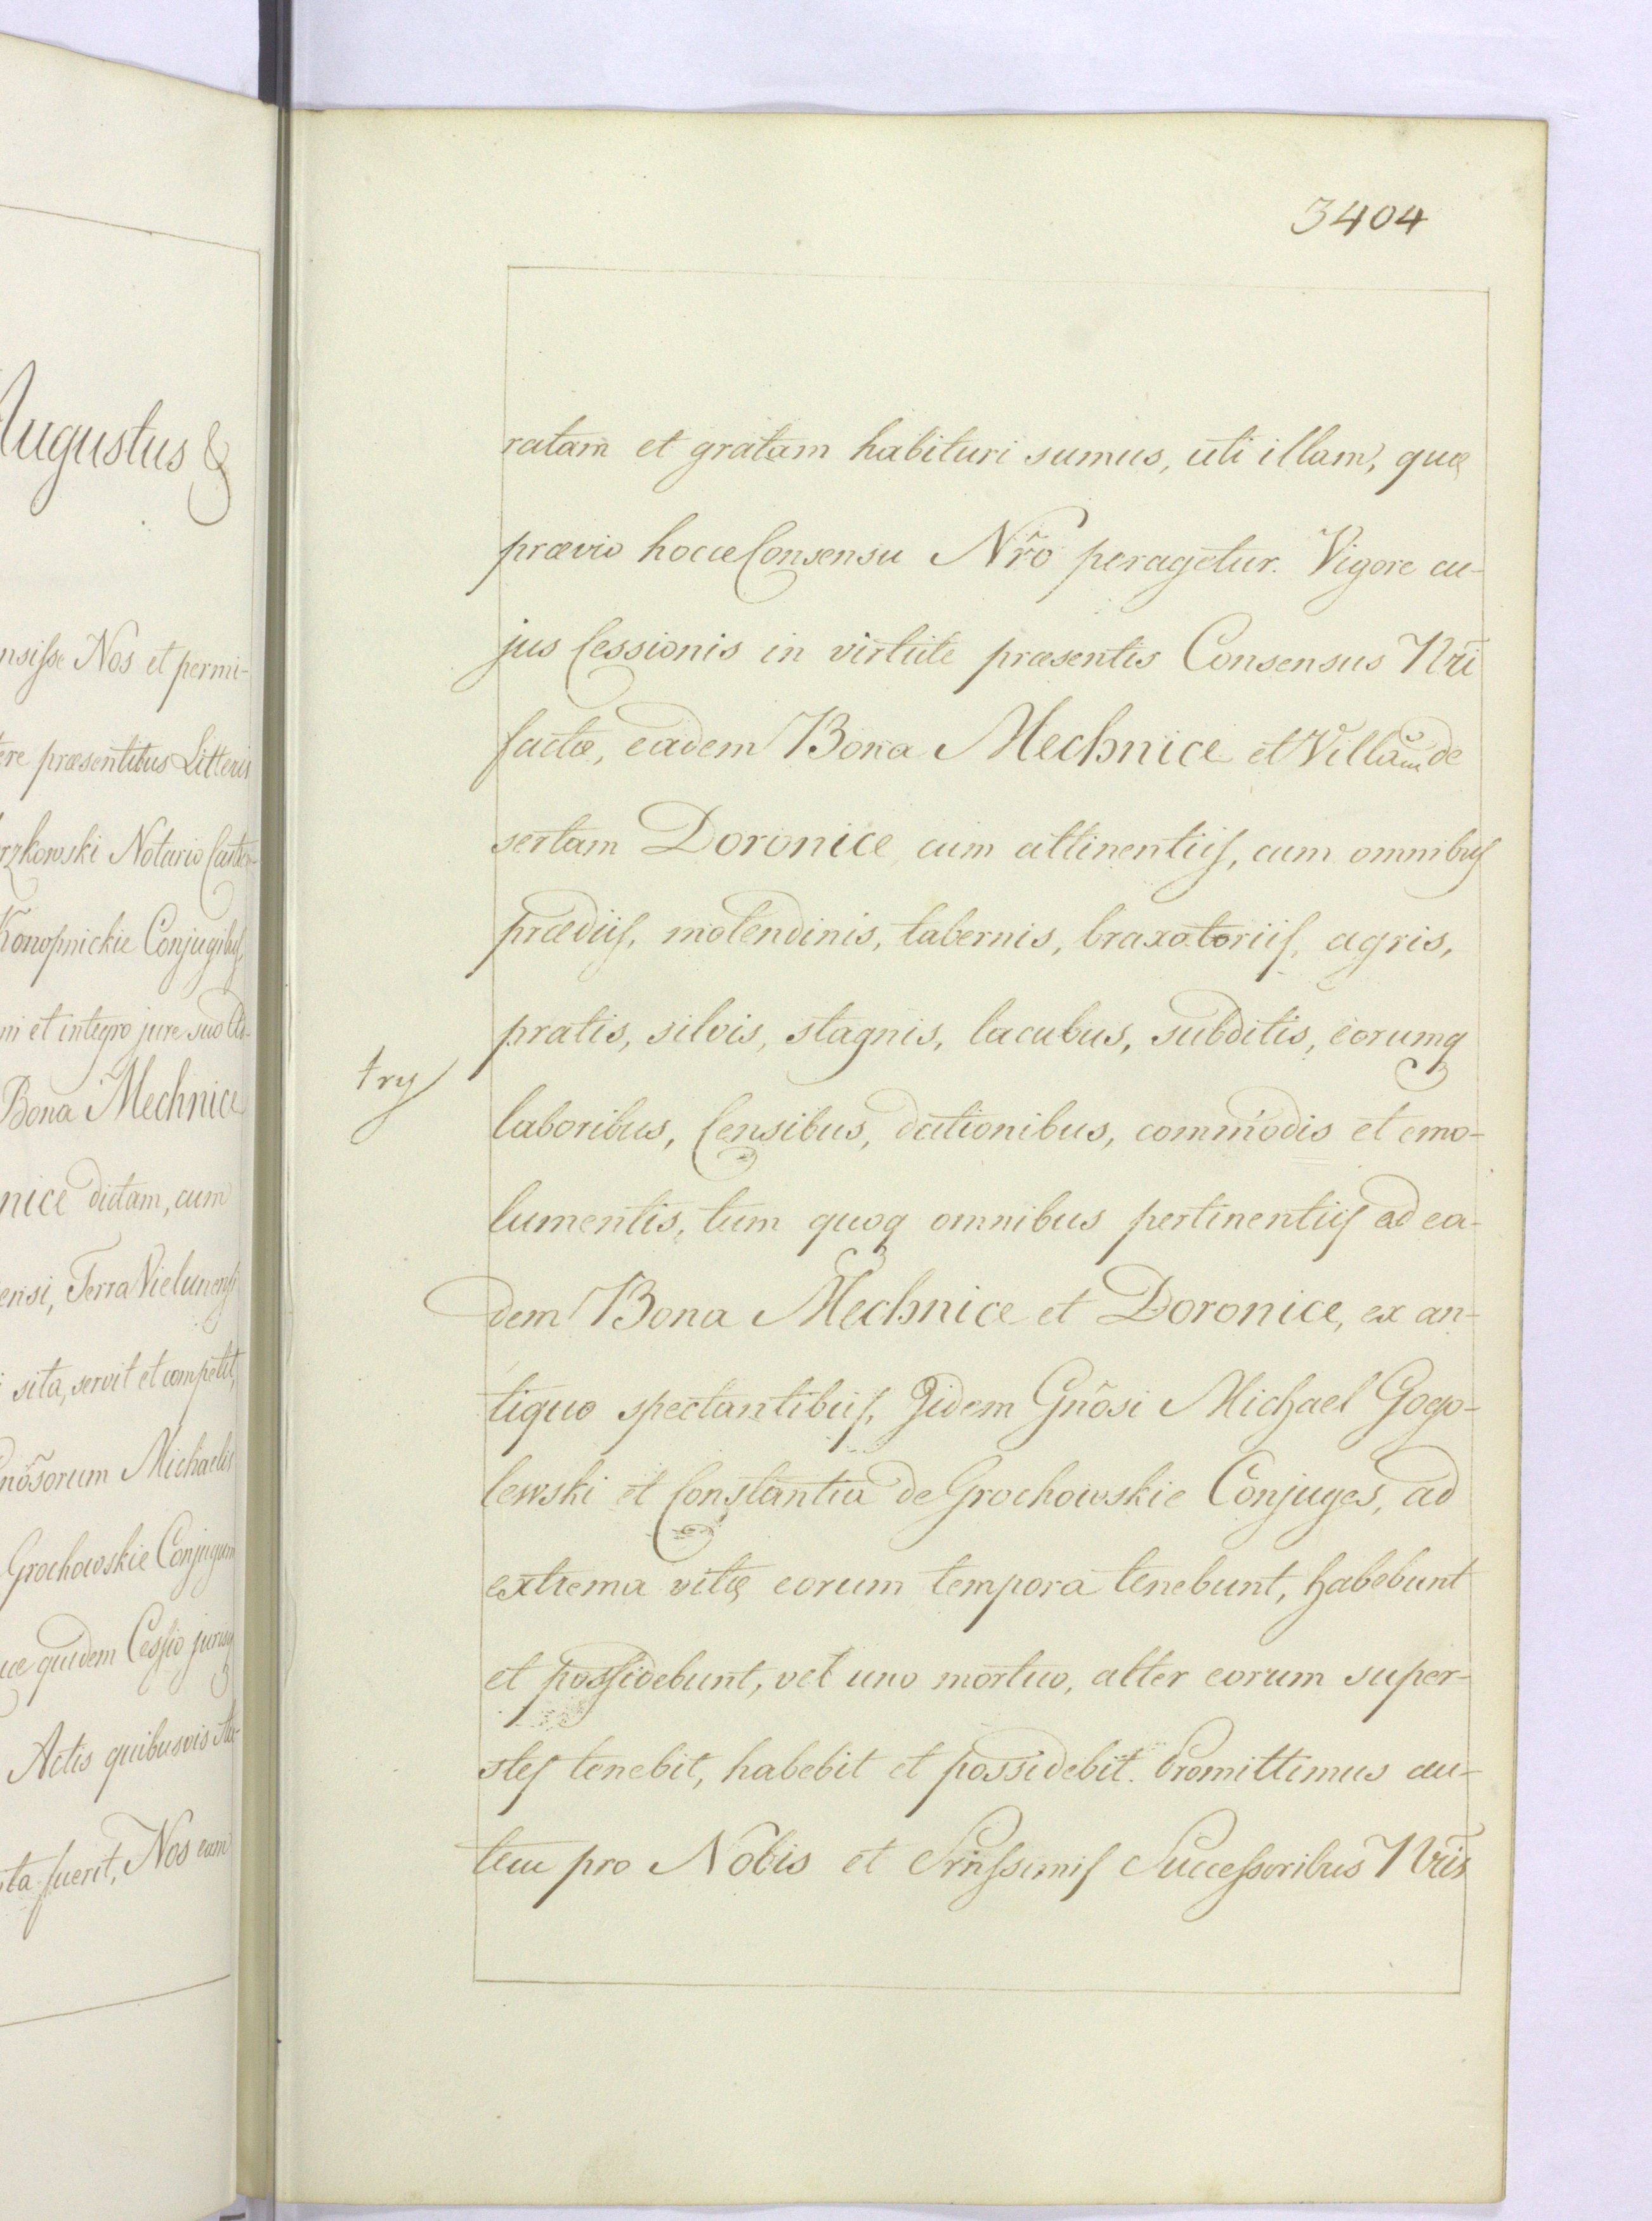 Augustus &
nsisse Nos et permi-
ere præsentibus Litteris
rzkowski Notario Castr
Konopnickie Conjugibus,
ni et integro jure suo
Bona Mechnice
nice dictam, cum
ensi, Terra Vielunensi
sita, servit et competit,
nõsorum Michaelis
Grochowskie Conjugum
quidem Cessio jurisq
Actis quibusvis
ta fuerit, Nos eam
3404
ratam et gratam habituri sumus, uti illam, quæ
prævio hocce Consensu Nr̃o peragetur. Vigore cu-
jus Cessionis in virtute præsentis Consensus Nr̃i
factæ, eadem Bona Mechnice et Villam de
sertam Doronice cum attinentiis, cum omnibus
prædiis, molendinis, tabernis, braxatoriis, agris,
pratis, silvis, stagnis, lacubus, subditis, eorumq
try
laboribus, Censibus, dationibus, commodis et emo-
lumentis, tum quoq omnibus pertinentiis ad ea-
dem Bona Mechnice et Doronice, ex an-
tiquo spectantibus, Iidem Gnõsi Michael Gogo-
lewski et Constantia de Grochowskie Conjuges, ad
extrema vitæ eorum tempora tenebunt, habebunt
et possidebunt, vel uno mortuo, alter eorum super-
stes tenebit, habebit et possidebit. Promittimus au-
tem pro Nobis et Srñssimis Successoribus Nr̃is